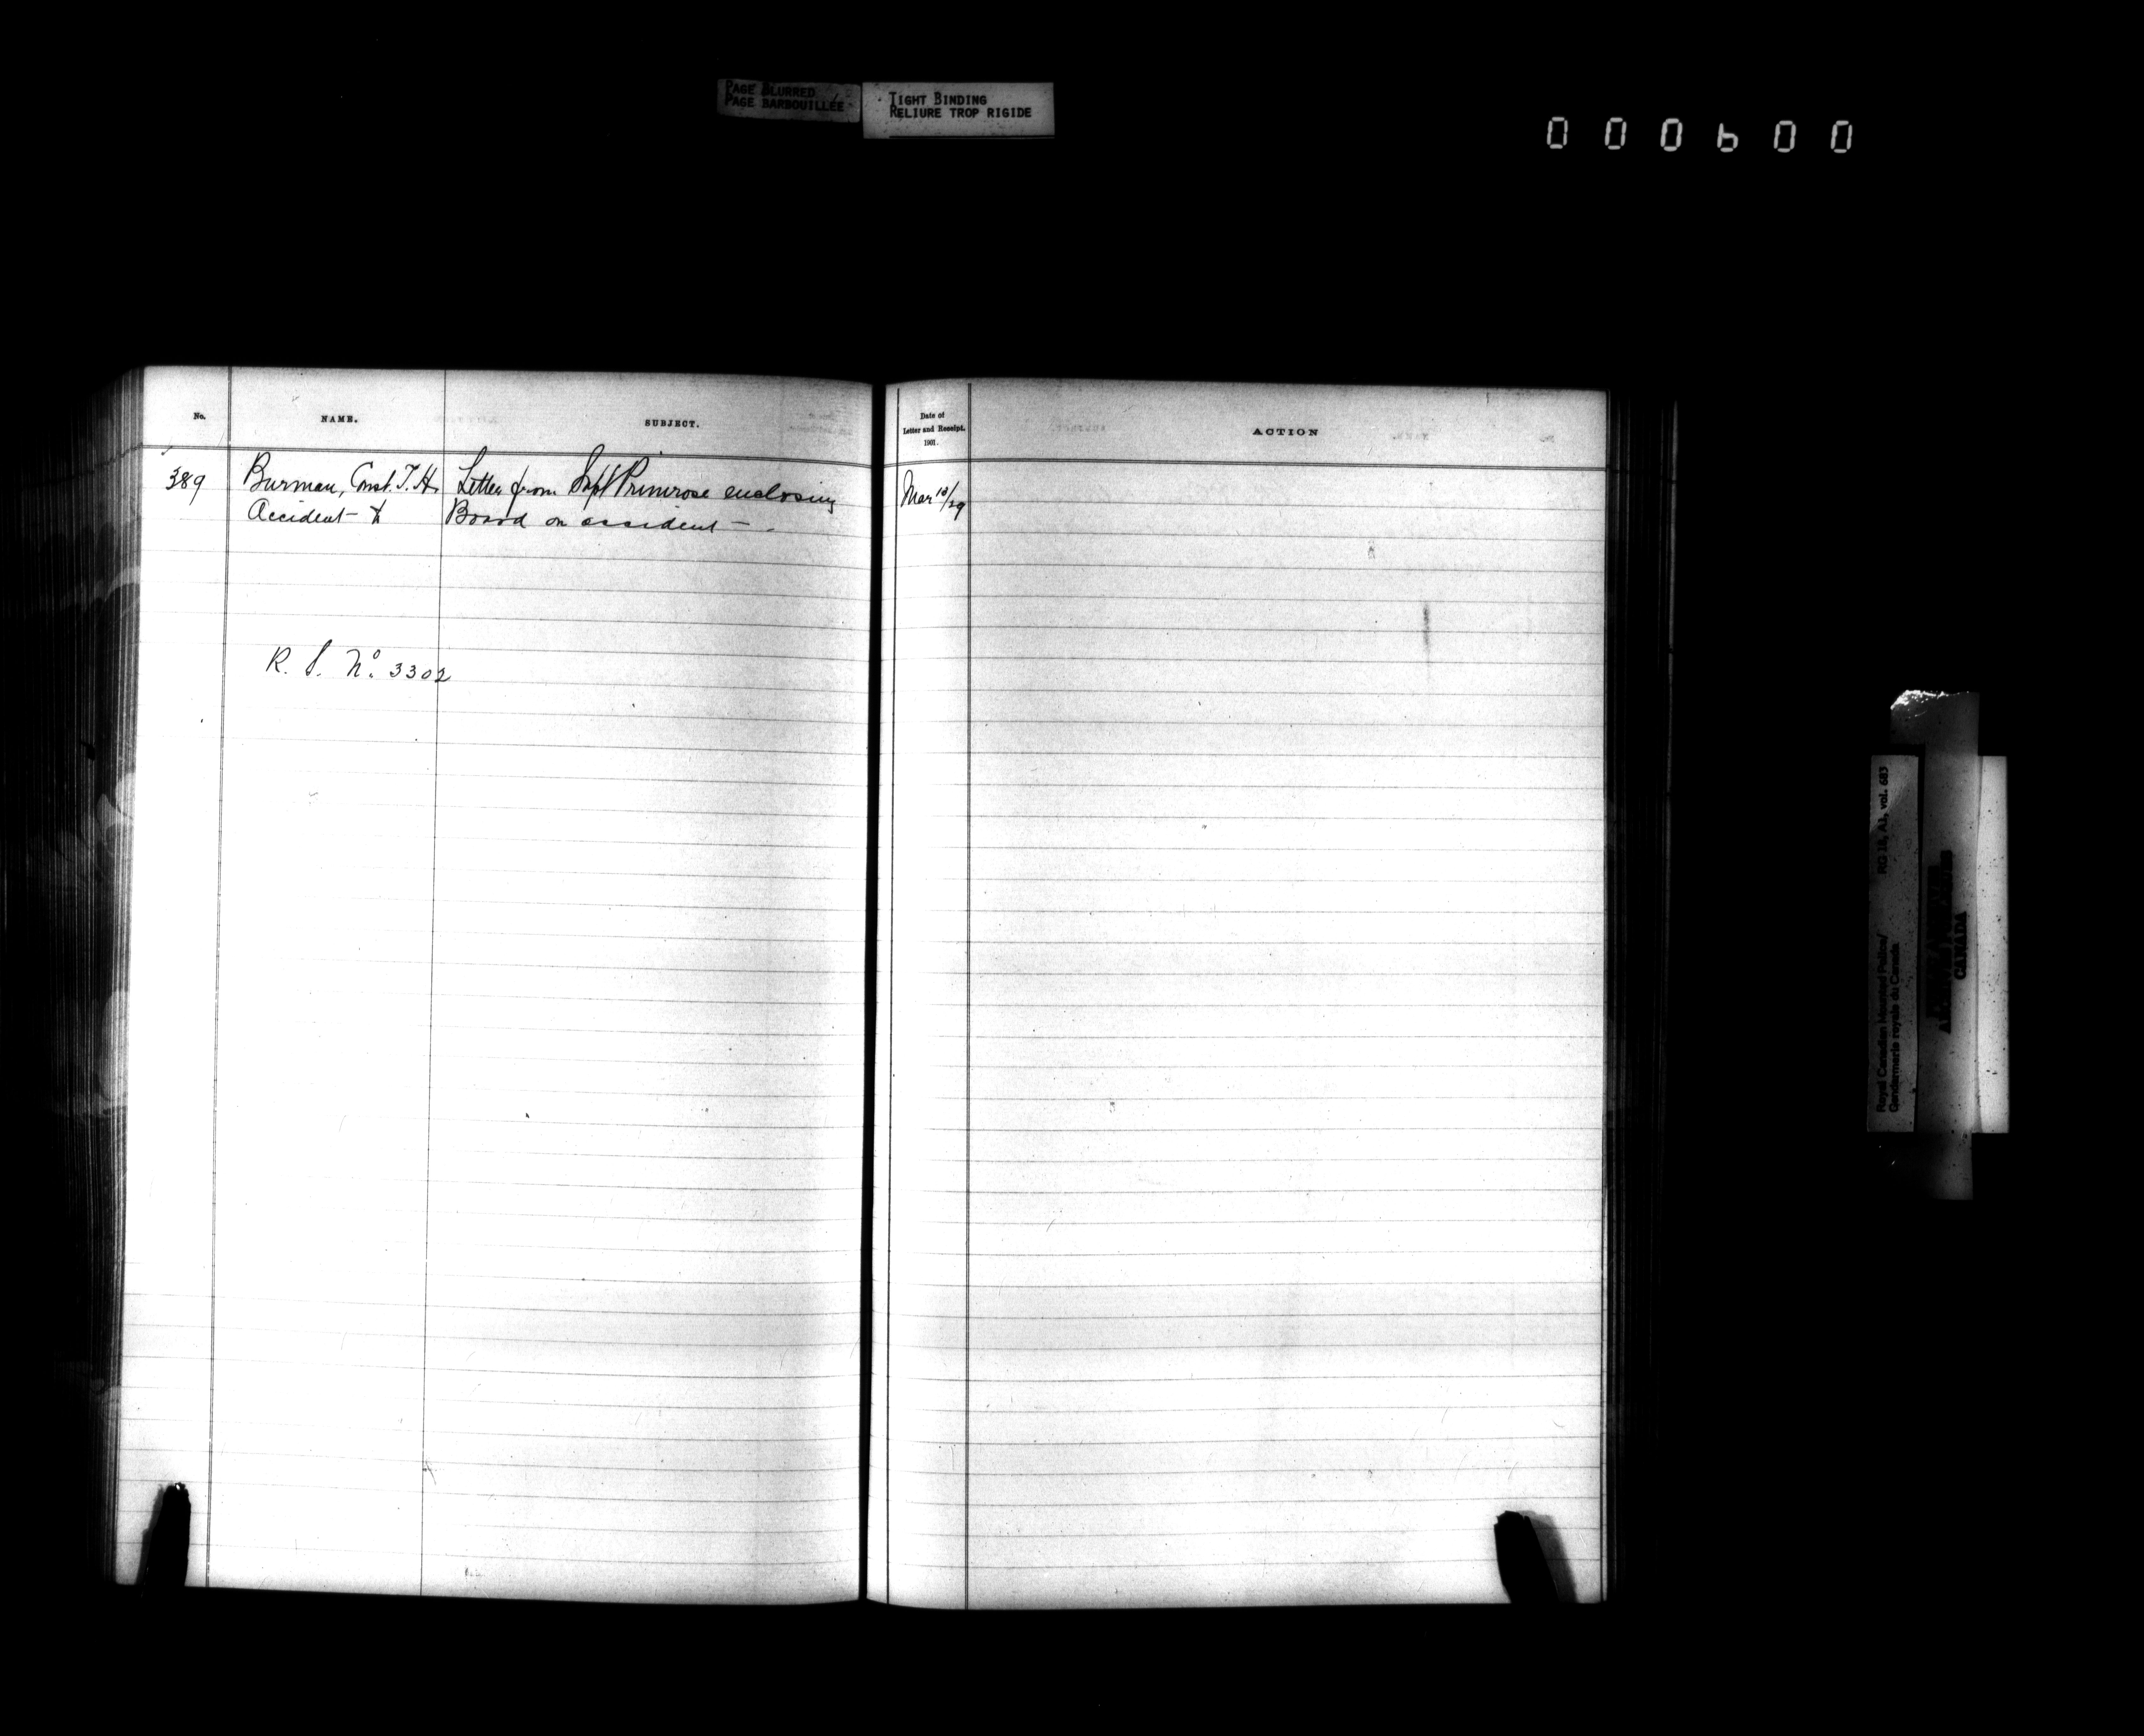 PAGE BLURRED
PAGE BARBOUILLÉE
TIGHT BINDING
RELIURE TROP RIGIDE
No.
NAME.
SUBJECT.
Date of
Letter and Receipt.
1901.
ACTION
389
Burman, Const. T. H.
Letter from Supt Primrose enclosing
Mar 18/29
Accident
Board on accident —
R. S. No. 3302
RG 18, A1, vol. 683
Royal Canadian Mounted Police/
Gendarmerie royale du Canada
CANADA